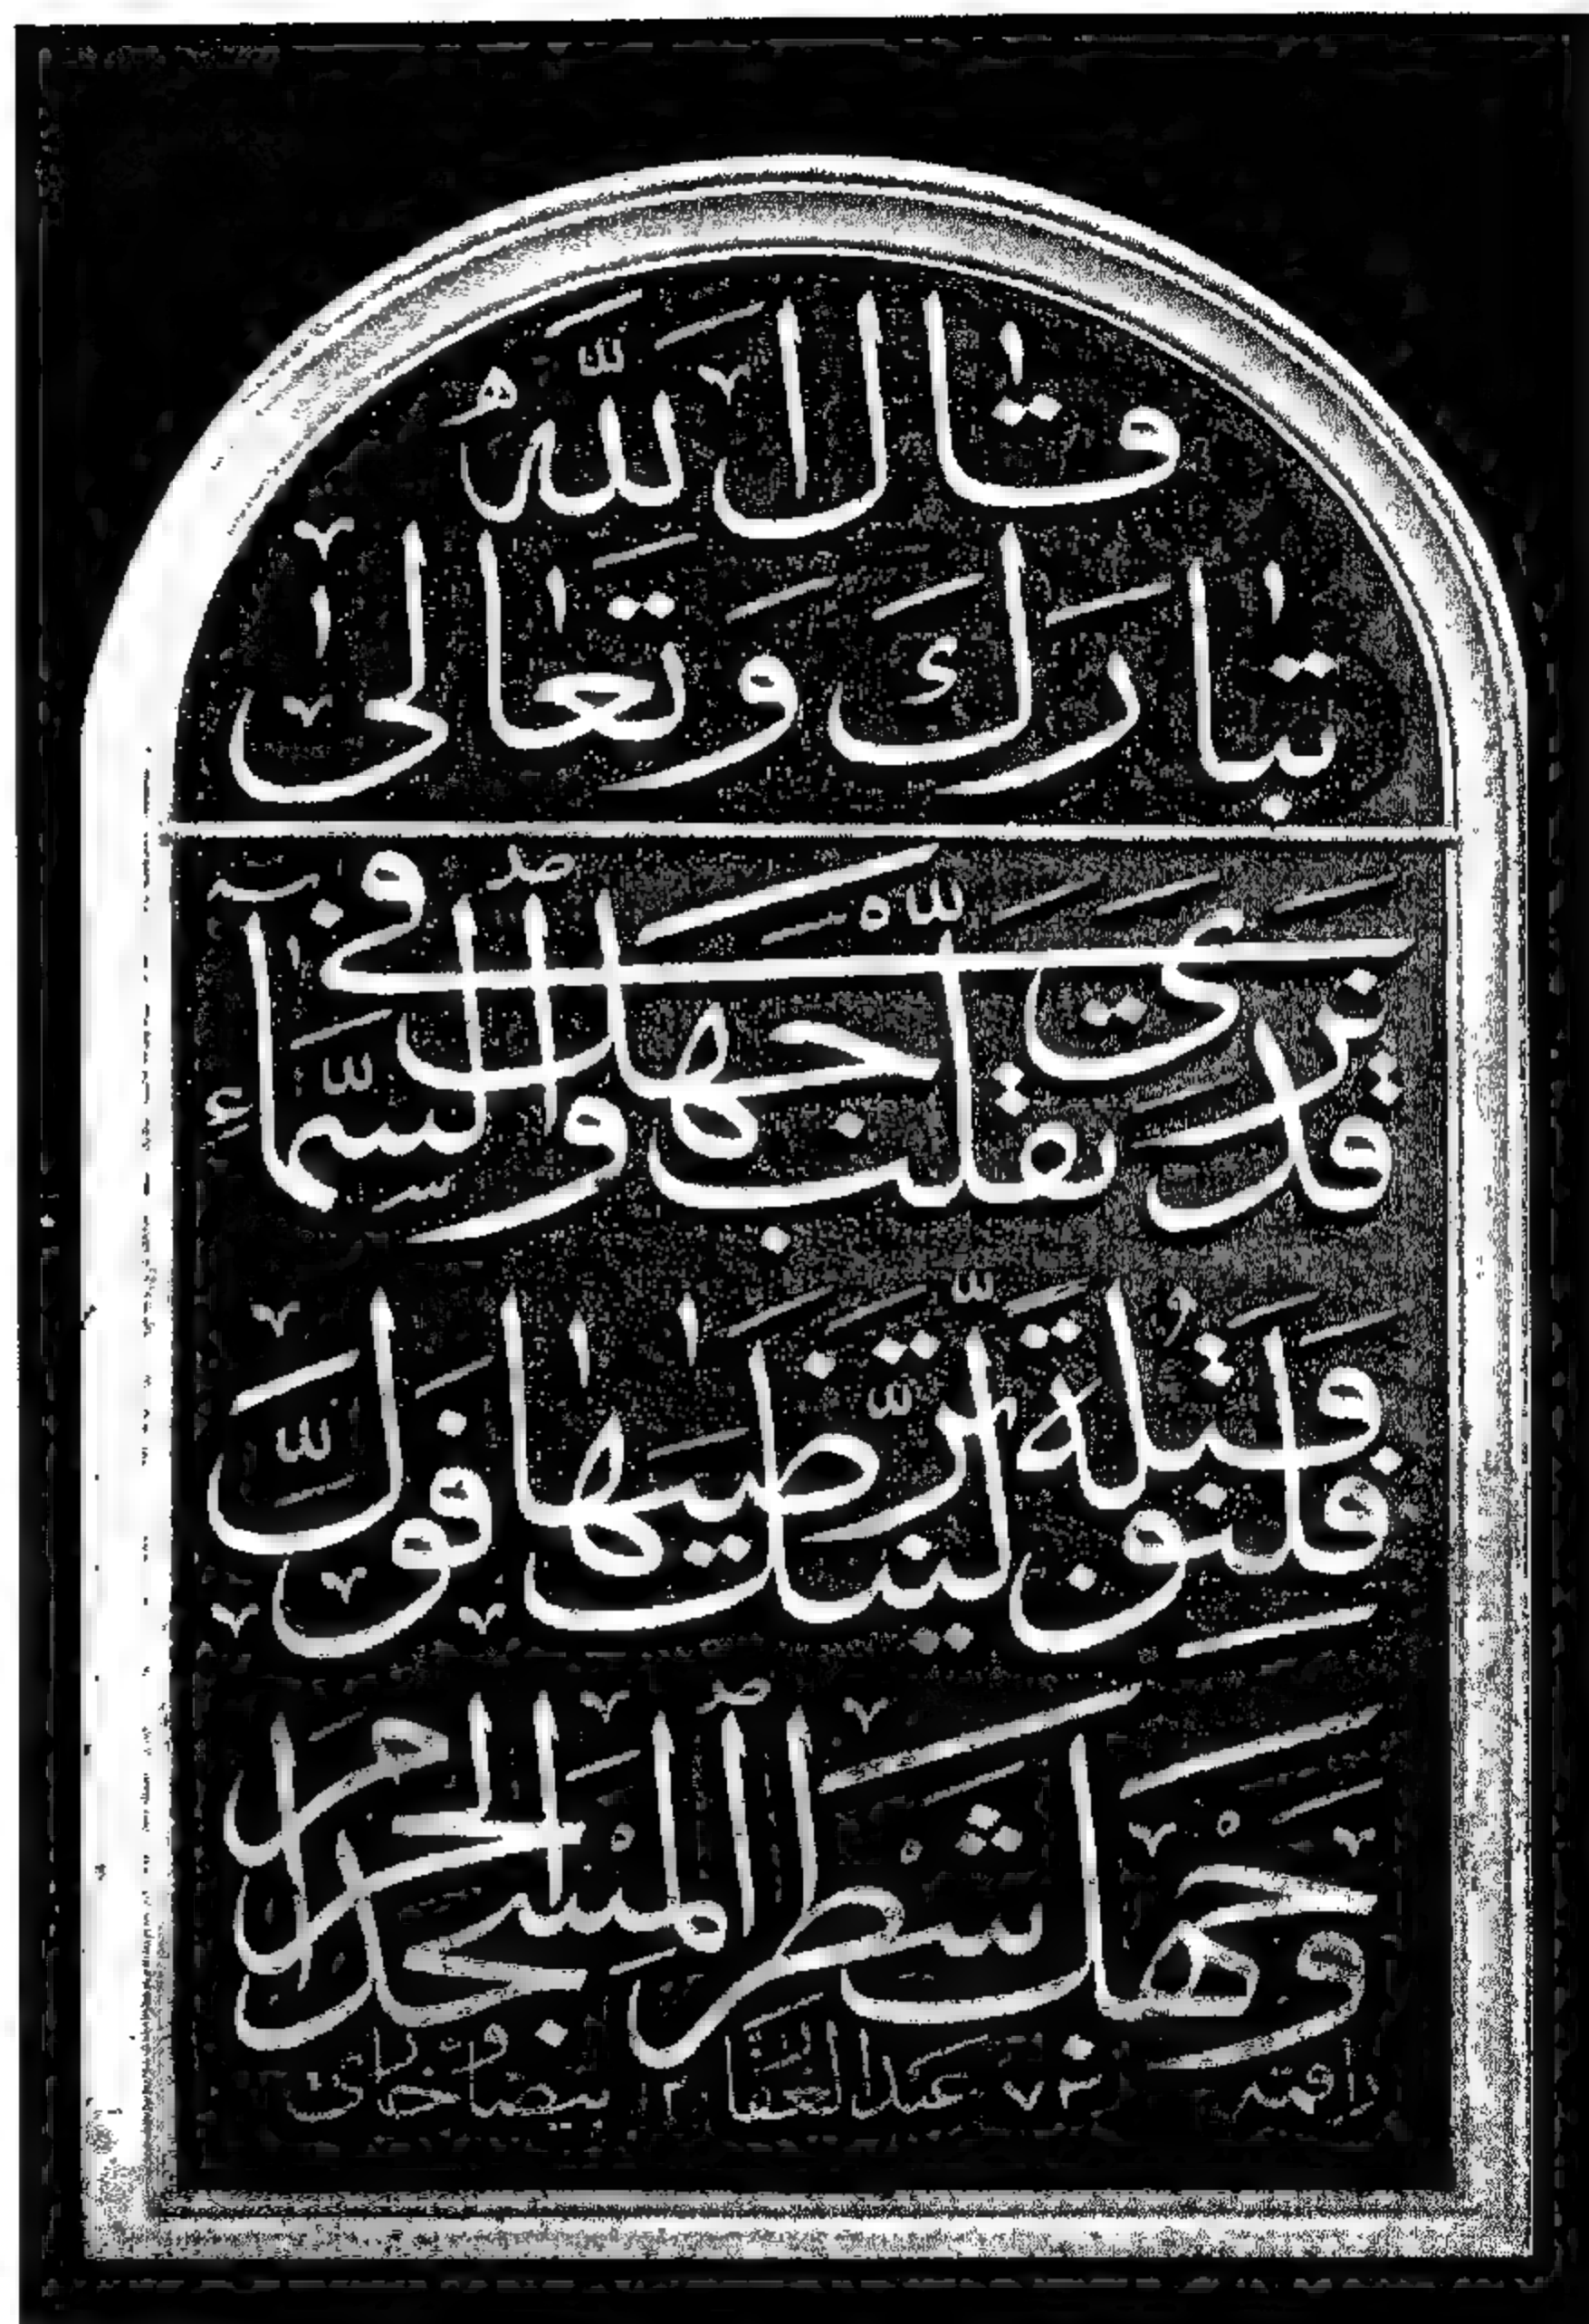 قال الله
تبارك وتعالى
قد نرى تقلب وجهك في السماء
فلنولينك قبلة ترضيها فول
وجهك شطر المسجد الحرام
راقمه عبد الغفار بيضاخانی